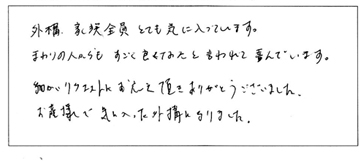 外構、家族全員とても気に入っています。
まわりの人からも すごく良くなったと言われて喜んでいます。
細かいリクエストに 頂きありがとうございました。
お蔭様で 気に入った外構になりました。